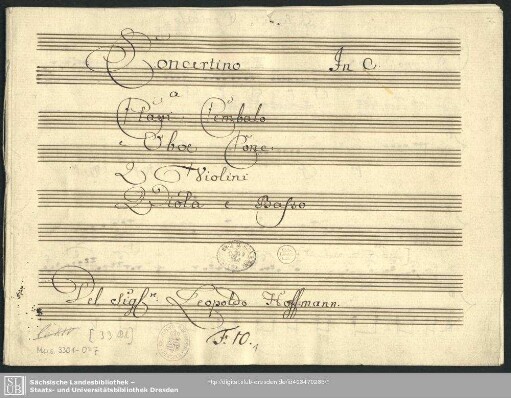 Concertino In C
a
Clavi Cembalo
e Oboe Conc:
2 Violini
Viola e Basso
Del Sigre Leopoldo Hoffmann.
F: 10.
[33 Bl]
Mus. 3301-O-7
SLUB
Sächsische Landesbibliothek –
Staats- und Universitätsbibliothek Dresden